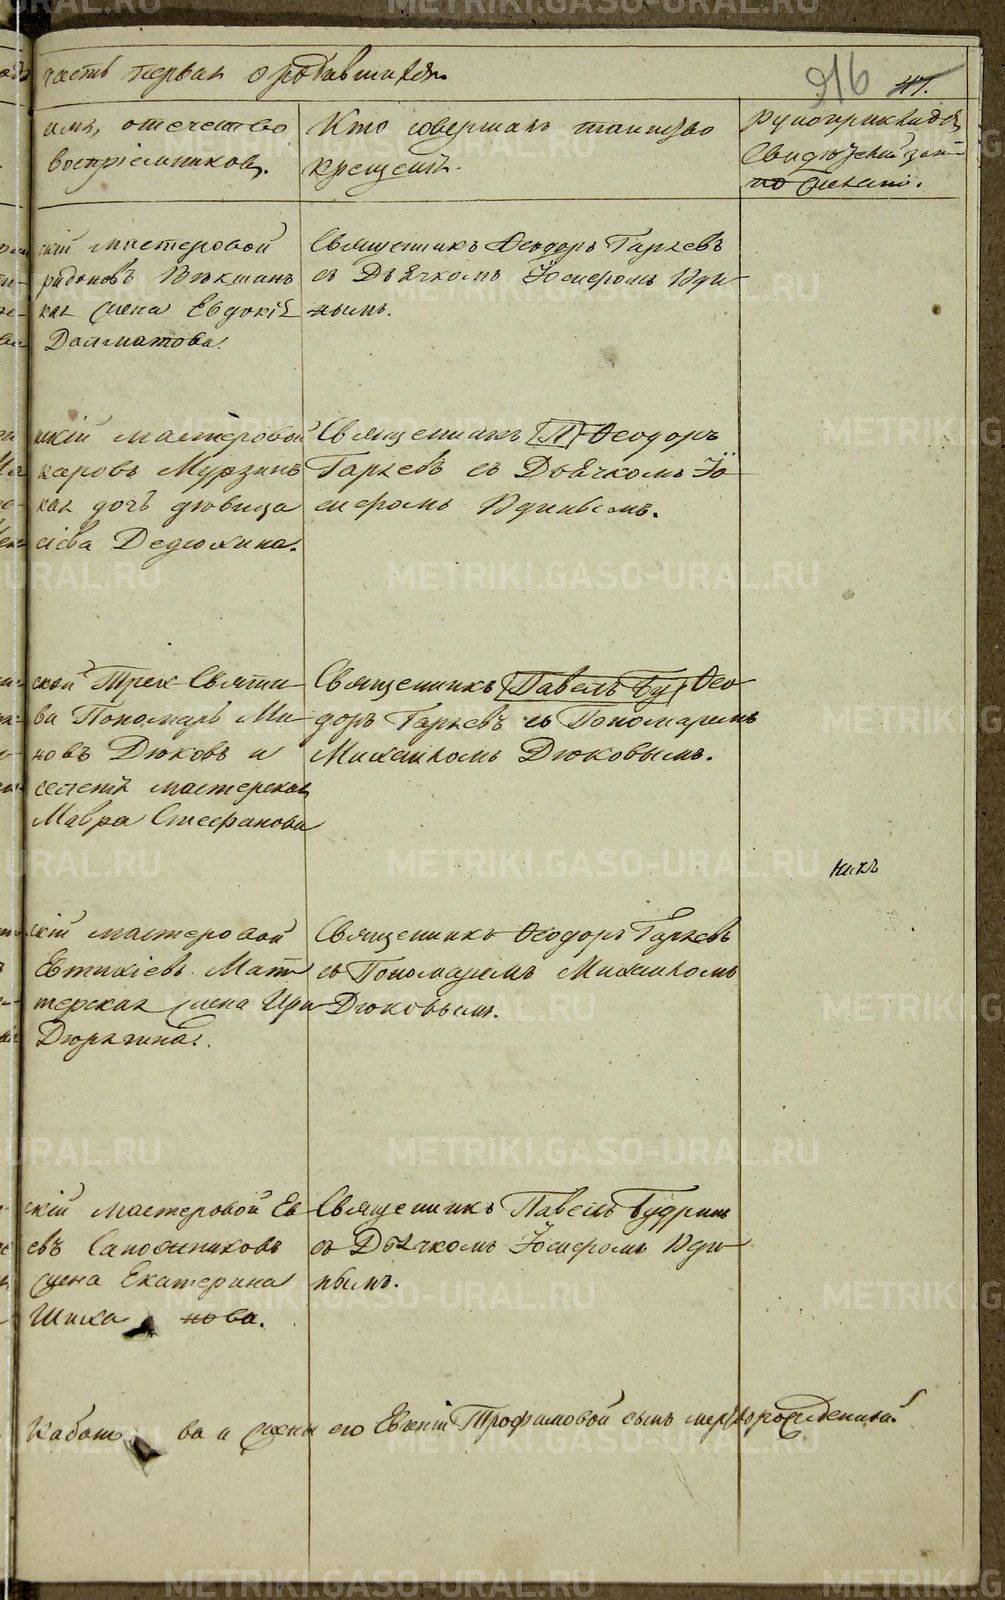 часть первая о родившихся.
916
имя, отечество
воспріемниковъ.
Кто совершалъ таинство
крещенія.
Рукоприкладс
свидѣтелей
по желанію.
скій мастеровой
Вѣкшинъ
кая жена Евдокія
Долматова.
Священникъ Ѳеодоръ Гаряевъ
съ Дьячкомъ Іосифомъ Юди
нымъ.
скій мастеровой
каровъ Мурзинъ
кая дочь дѣвица
сіева Дедюхина.
Священникъ П Ѳеодоръ
Гаряевъ съ Дьячкомъ Іо
сифомъ Юдинымъ.
ской Трех Святи
ва Пономарь Ми
новъ Дюковъ и
мастерская
Мавра Стефанова
Священникъ Павелъ Бу Ѳео
доръ Гаряевъ съ Пономаремъ
Михаиломъ Дюковымъ.
никъ
скій мастеровой
Евтихіевъ Мат
терская жена Ири
Дюрягина.
Священникъ Ѳеодоръ Гаряевъ
съ Пономаремъ Михаиломъ
Дюковымъ.
скій мастеровой Ев
евъ Сапожниковъ
жена Екатерина
Шиха нова.
Священникъ Павелъ Будринъ
съ Дьячкомъ Іосифомъ Юди
нымъ.
ва и жены его Евгеніи Трофимовой сынъ мертворожденный.
METRIKI.GASO-URAL.RU